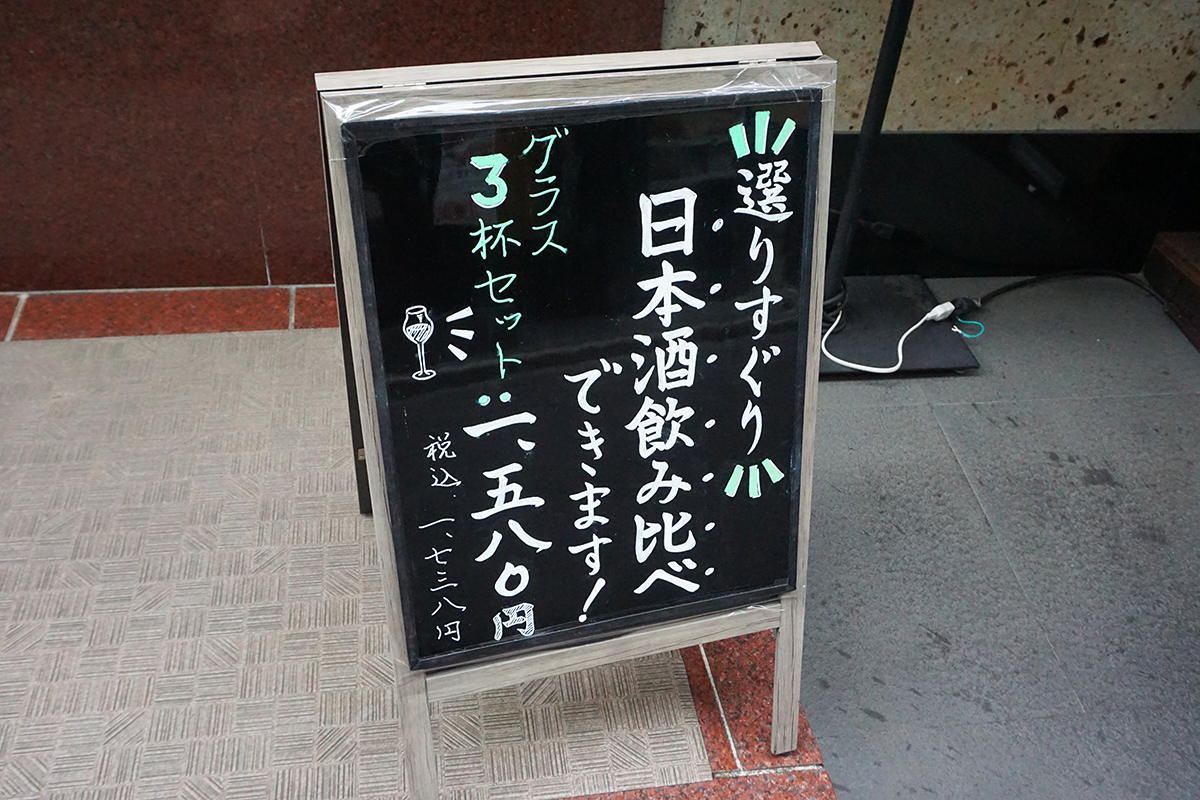 選りすぐり
日本酒飲み比べ
できます!
グラス
3杯セット:一、五八〇円
税込.一、七三八円